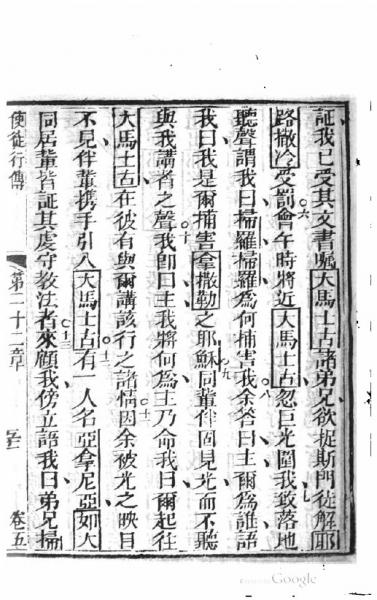 証我已受其文書囑大馬士古諸弟兄欲捉斯門徒解耶
路撒冷受罰會午時將近大馬士古忽巨光圍我致落地
聽聲謂我曰掃羅掃羅為何捕害我余答曰主爾為誰語
我曰我是爾捕害拿撒勒之耶穌同輩伴固見光而不聽
與我講者之聲我卽曰主我將何為主乃命我曰爾起往
大馬士古在彼有與爾講該行之諸情因余被光之映目
不見伴輩携手引入大馬士古有一人名亞拿尼亞如大
同居輩皆証其處守教法者來顧我傍立語我曰弟兄掃
使徒行傳 第二十二章 卷五
Google